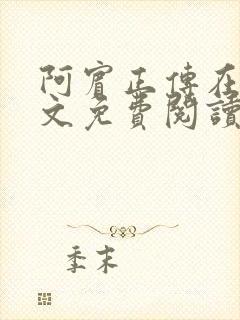 阿賓正傳在
文免費閱讀
季末